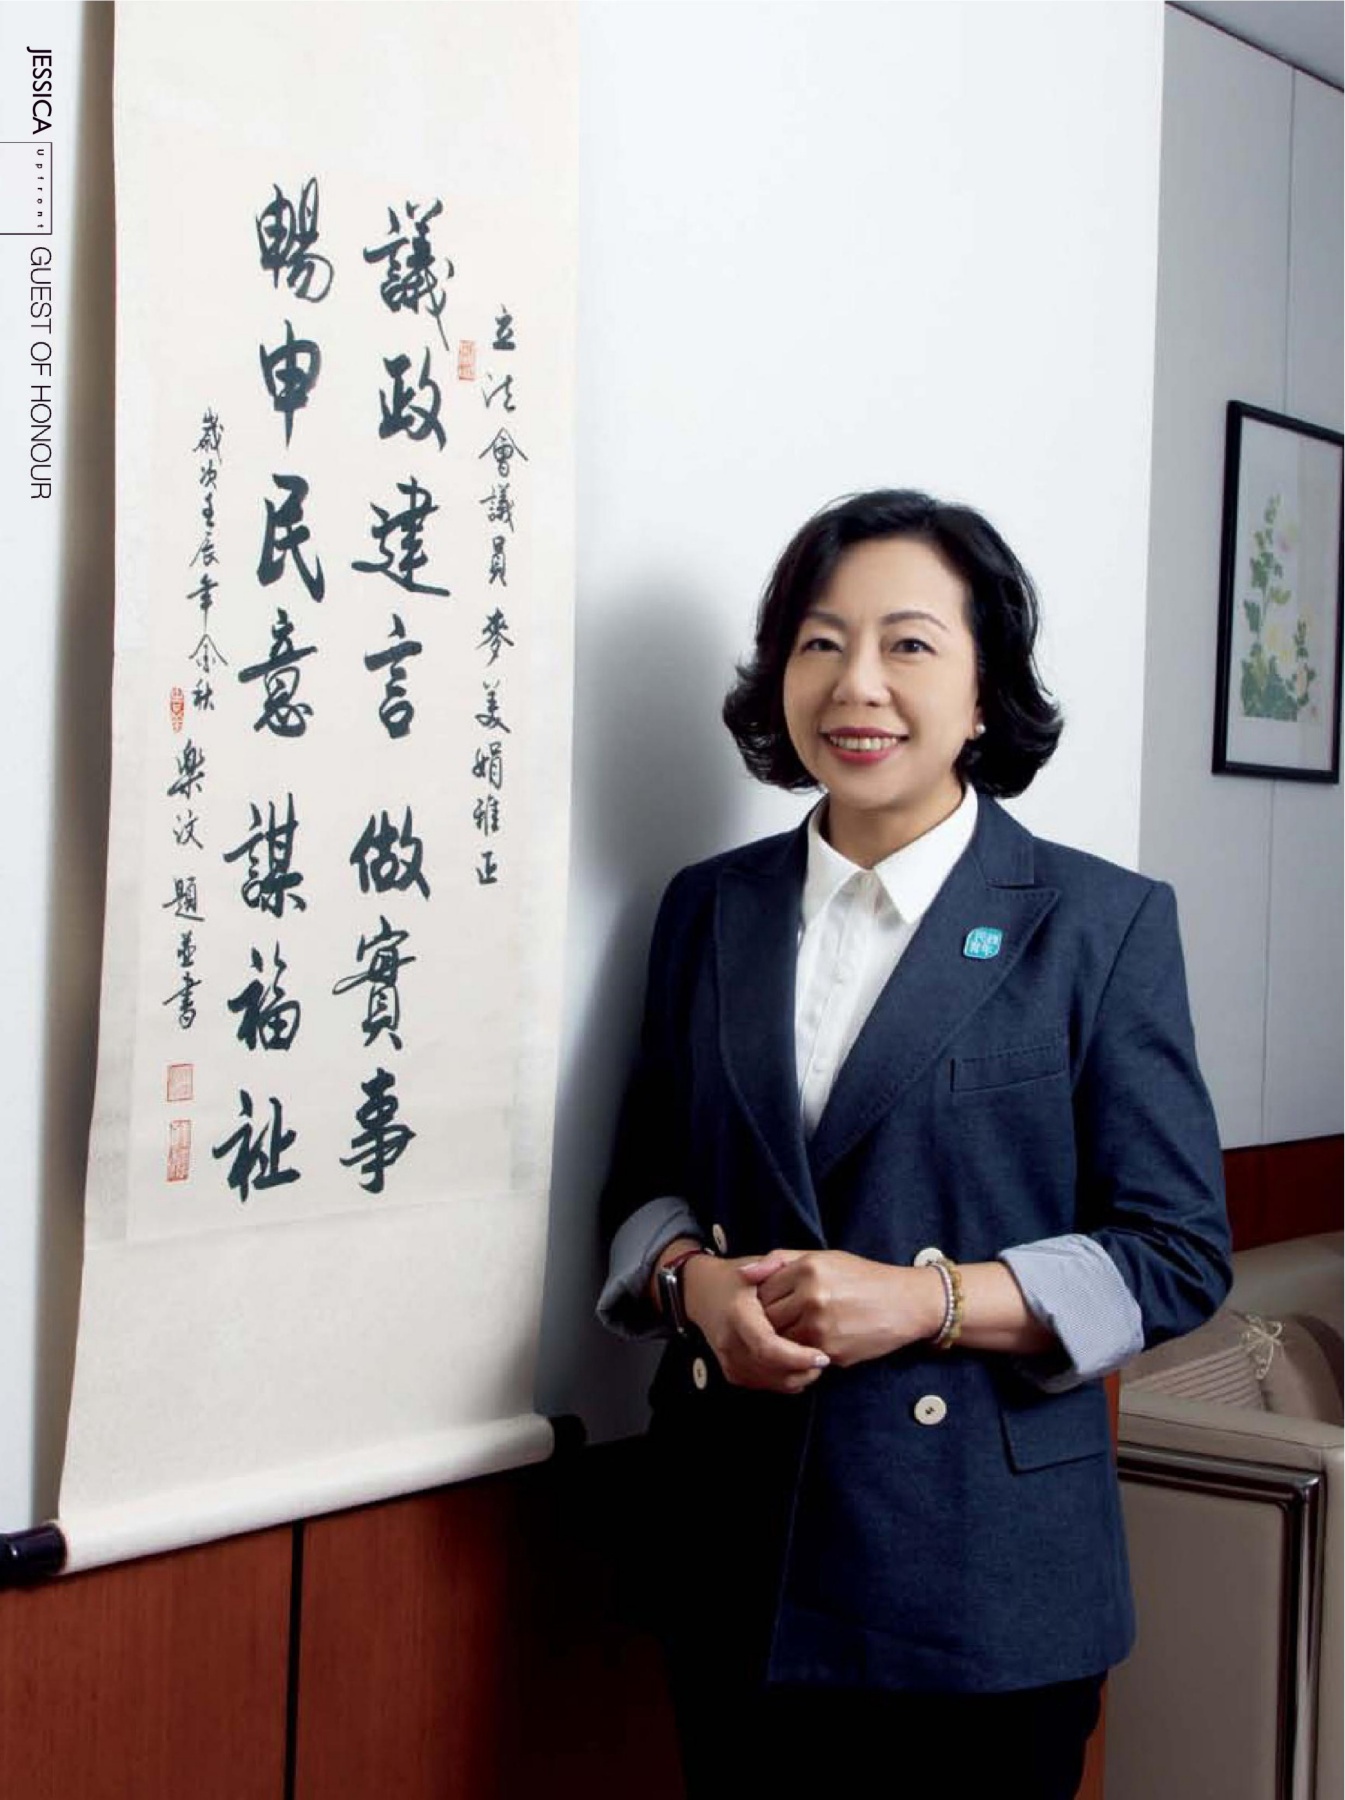 JESSICA
Upfront
GUEST OF HONOUR
立法會議員麥美娟雅正
議政建言做實事
暢申民意謀福祉
歲次壬辰年金秋
樂汶題並書